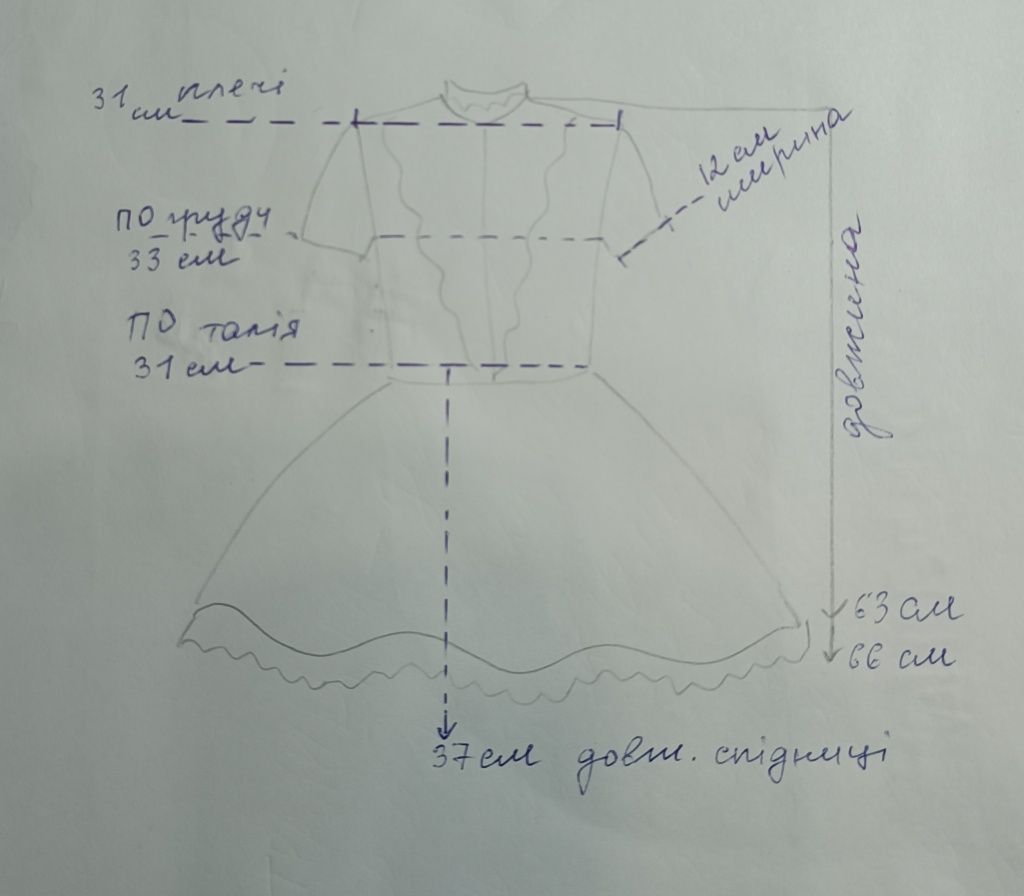 31 см плечі
12 см
ширина
ПО груді
33 см
довжина
ПО талія
31 см
63 см
66 см
37 см довж. спідниці